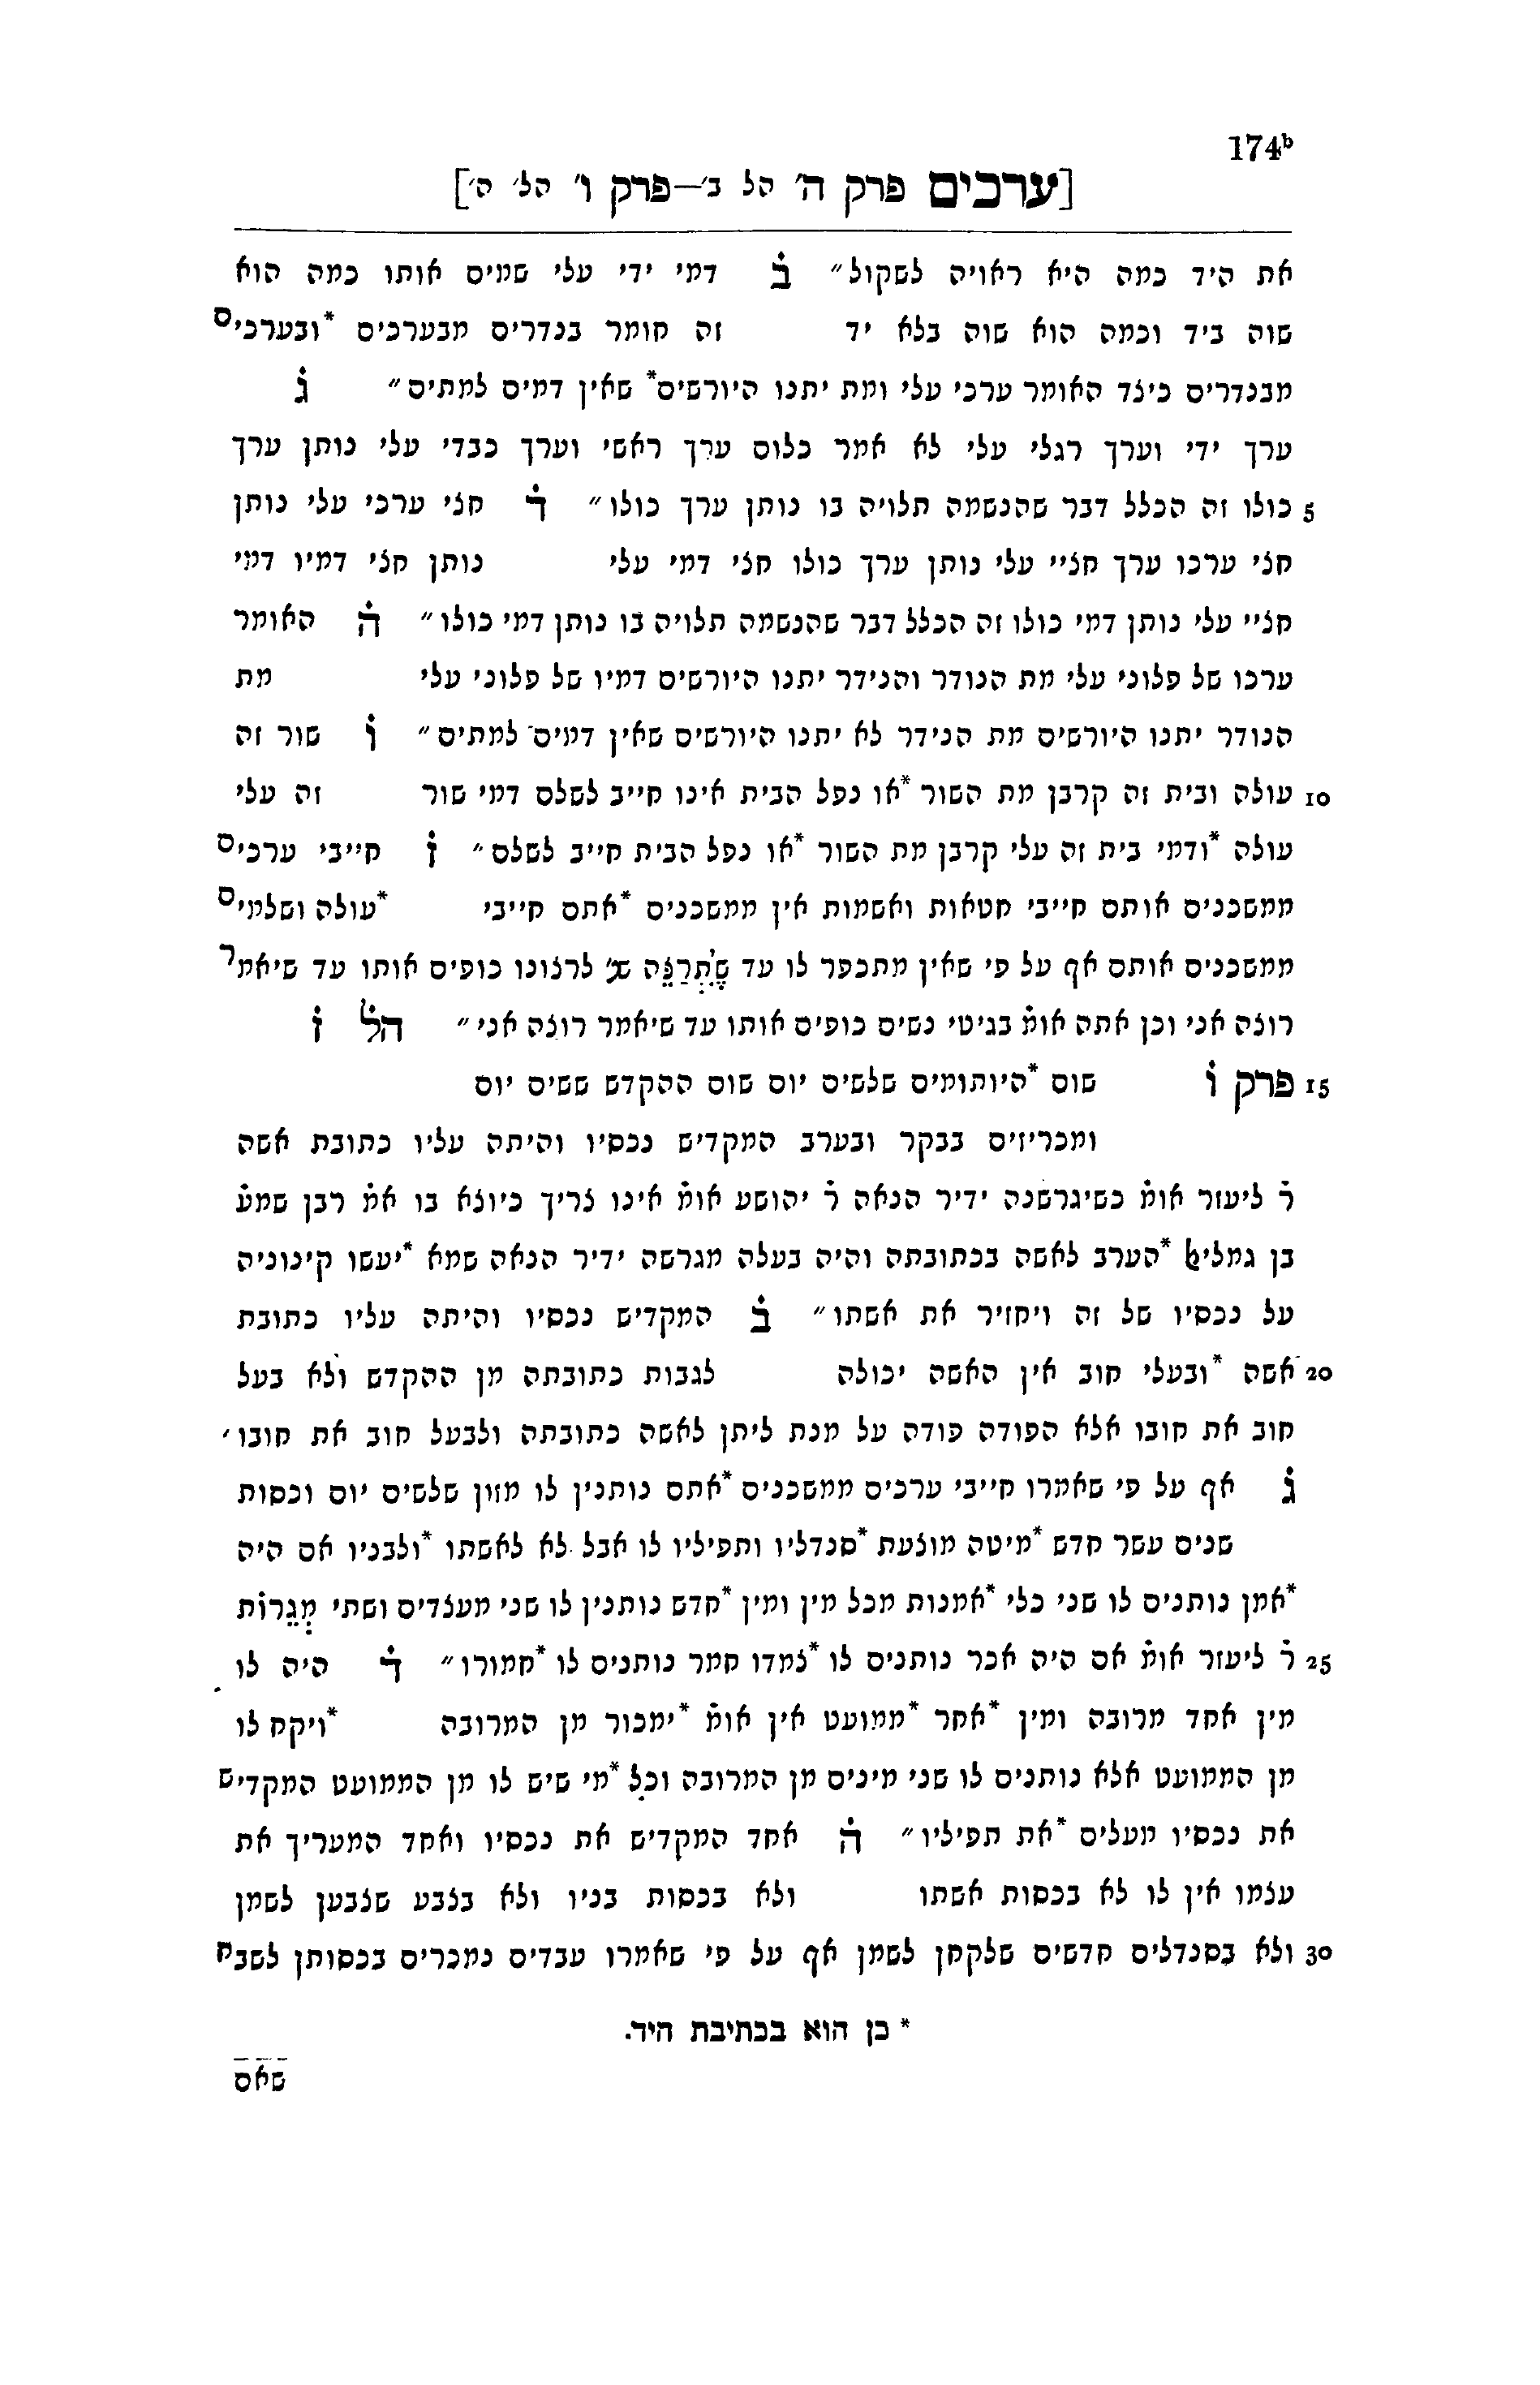 174b
[ערכים פרק ה׳ הל ב׳—פרק ו׳ הל׳ ה׳]
את היד כמה היא ראויה לשקול״ ב דמי ידי עלי שמים אותו כמה הוא
שוה ביד וכמה הוא שוה בלא יד זה חומר בנדרים מבערכים *ובערכים
מבנדרים כיצד האומר ערכי עלי ומת יתנו היורשים* שאין דמים למתים״ ג
ערך ידי וערך רגלי עלי לא אמר כלום ערך ראשי וערך כבדי עלי נותן ערך
5 כולו זה הכלל דבר שהנשמה תלויה בו נותן ערך כולו״ ד חצי ערכי עלי נותן
חצי ערכו ערך חציי עלי נותן ערך כולו חצי דמי עלי נותן חצי דמיו דמי
חציי עלי נותן דמי כולו זה הכלל דבר שהנשמה תלויה בו נותן דמי כולו״ ה האומר
ערכו של פלוני עלי מת הנודר והנידר יתנו היורשים דמיו של פלוני עלי מת
הנודר יתנו היורשים מת הנידר לא יתנו היורשים שאין דמים למתים״ ו שור זה
10 עולה ובית זה קרבן מת השור *או נפל הבית אינו חייב לשלם דמי שור זה עלי
עולה *ודמי בית זה עלי קרבן מת השור *או נפל הבית חייב לשלם״ ז חייבי ערכים
ממשכנים אותם חייבי חטאות ואשמות אין ממשכנים *אתם חייבי *עולה ושלמים
ממשכנים אותם אף על פי שאין מתכפר לו עד שֶׁתְּרַצֶּה שנ׳ לרצונו כופים אותו עד שיאמר
רוצה אני וכן אתה אומ̇ בגיטי נשים כופים אותו עד שיאמר רוצה אני״ הל̇ ז̇
15 פרק ו̇ שום *היותומים שלשים יום שום ההקדש ששים יום
ומכריזים בבקר ובערב המקדיש נכסיו והיתה עליו כתובת אשה
ר̇ ליעזר אומ̇ כשיגרשנה ידיר הנאה ר̇ יהושע אומ̇ אינו צריך כיוצא בו אמ̇ רבן שמע̇
בן גמליאל *הערב לאשה בכתובתה והיה בעלה מגרשה ידיר הנאה שמא *יעשו קינוניה
על נכסיו של זה ויחזיר את אשתו״ ב המקדיש נכסיו והיתה עליו כתובת
20 אשה *ובעלי חוב אין האשה יכולה לגבות כתובתה מן ההקדש ולא בעל
חוב את חובו אלא הפודה פודה על מנת ליתן לאשה כתובתה ולבעל חוב את חובו׳
ג אף על פי שאמרו חייבי ערכים ממשכנים *אתם נותנין לו מזון שלשים יום וכסות
שנים עשר חדש *מיטה מוצעת *סנדליו ותפיליו לו אבל לא לאשתו *ולבניו אם היה
*אמן נותנים לו שני כלי *אמנות מכל מין ומין *חדש נותנין לו שני מעצדים ושתי מְגֵרוֹת
25 ר̇ ליעזר אומ̇ אם היה אכר נותנים לו *צמדו חמר נותנים לו *חמורו״ ד היה לו
מין אחד מרובה ומין *אחר *ממועט אין אומ̇ *ימכור מן המרובה *ויקח לו
מן הממועט אלא נותנים לו שני מינים מן המרובה וכל *מי שיש לו מן הממועט המקדיש
את נכסיו מעלים *את תפיליו״ ה אחד המקדיש את נכסיו ואחד המעריך את
עצמו אין לו לא בכסות אשתו ולא בכסות בניו ולא בצבע שצבען לשמן
30 ולא בסנדלים חדשים שלקחן לשמן אף על פי שאמרו עבדים נמכרים בכסותן לשבח
* כן הוא בכתיבת היד.
שאם